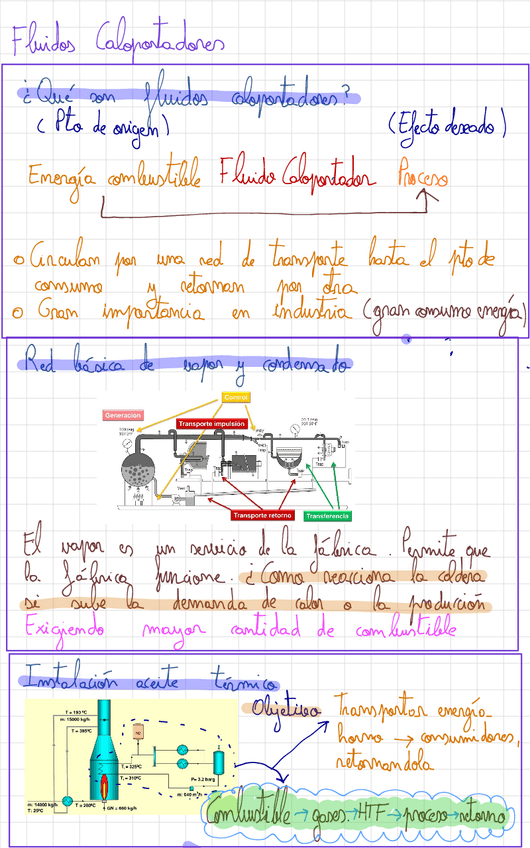 Fluidos Caloportadores
¿Qué son fluidos caloportadores?
(Pto de origen) (Efecto deseado)
Energía combustible Fluido Caloportador Proceso
o Circulan por una red de transporte hasta el pto de
consumo y retornan por otra
o Gran importancia en industria (gran consumo energía)
Red básica de vapor y condensado
Control
Generacion
Transporte impulsión
Transporte retorno
Transferencia
El vapor es un servicio de la fábrica. Permite que
la fábrica funcione. ¿Como reacciona la caldera
si sube la demanda de calor o la producción
Exigiendo mayor cantidad de combustible
Instalación aceite térmico
Objetivo
Transportar energía
horno → consumidores,
retornandola
T = 193 ºC
m: 15000 kg/h
T = 385ºC
T = 325ºC
T = 310ºC
P= 3.2 barg
m: 540 m³/h
m: 14000 kg/h
T: 20ºC
T = 280ºC
GN = 600 kg/h
Combustible → gases → HTF → proceso → retorno